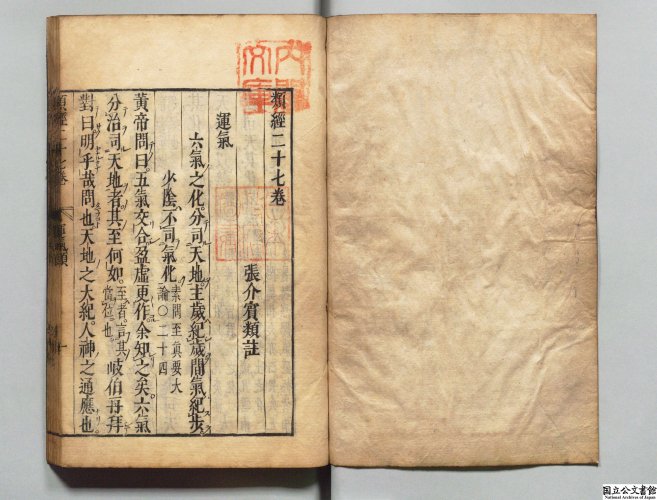 類經二十七卷
張介賓類註
運氣
六氣之化分司天地主歲紀歲間氣紀步
少陰不司氣化
素問至眞要大
論○二十四
黃帝問曰五氣交合盈虛更作余知之矣六氣
分治司天地者其至何如
至者言其
當位也
岐伯再拜
對曰明乎哉問也天地之大紀人神之通應也
類經二十七卷
運氣類
一
內閣
文庫
国立公文書館
National Archives of Japan